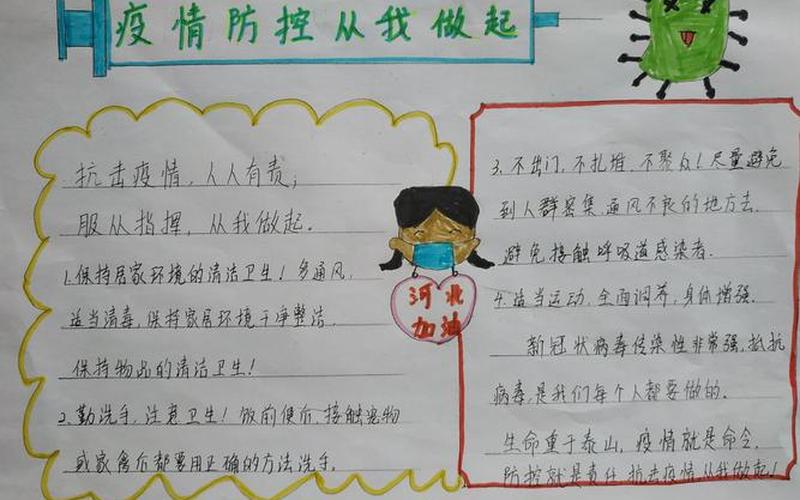 疫情防控从我做起
抗击疫情,人人有责;
服从指挥,从我做起.
1.保持居家环境的清洁卫生!多通风,
适当消毒,保持家居环境干净整洁.
保持物品的清洁卫生!
2.勤洗手,注意卫生!饭前便后,接触宠物
或家禽后都要用正确的方法洗手.
河北
加油
3.不出门,不扎堆,不聚众!尽量避免
到人群密集,通风不良的地方去.
避免接触呼吸道感染者.
4.适当运动.全面调养,身体增强.
新冠状病毒传染性非常强,抵抗
病毒,是我们每个人都要做的.
生命重于泰山,疫情就是命令.
防控就是责任 抗击疫情 从我做起!